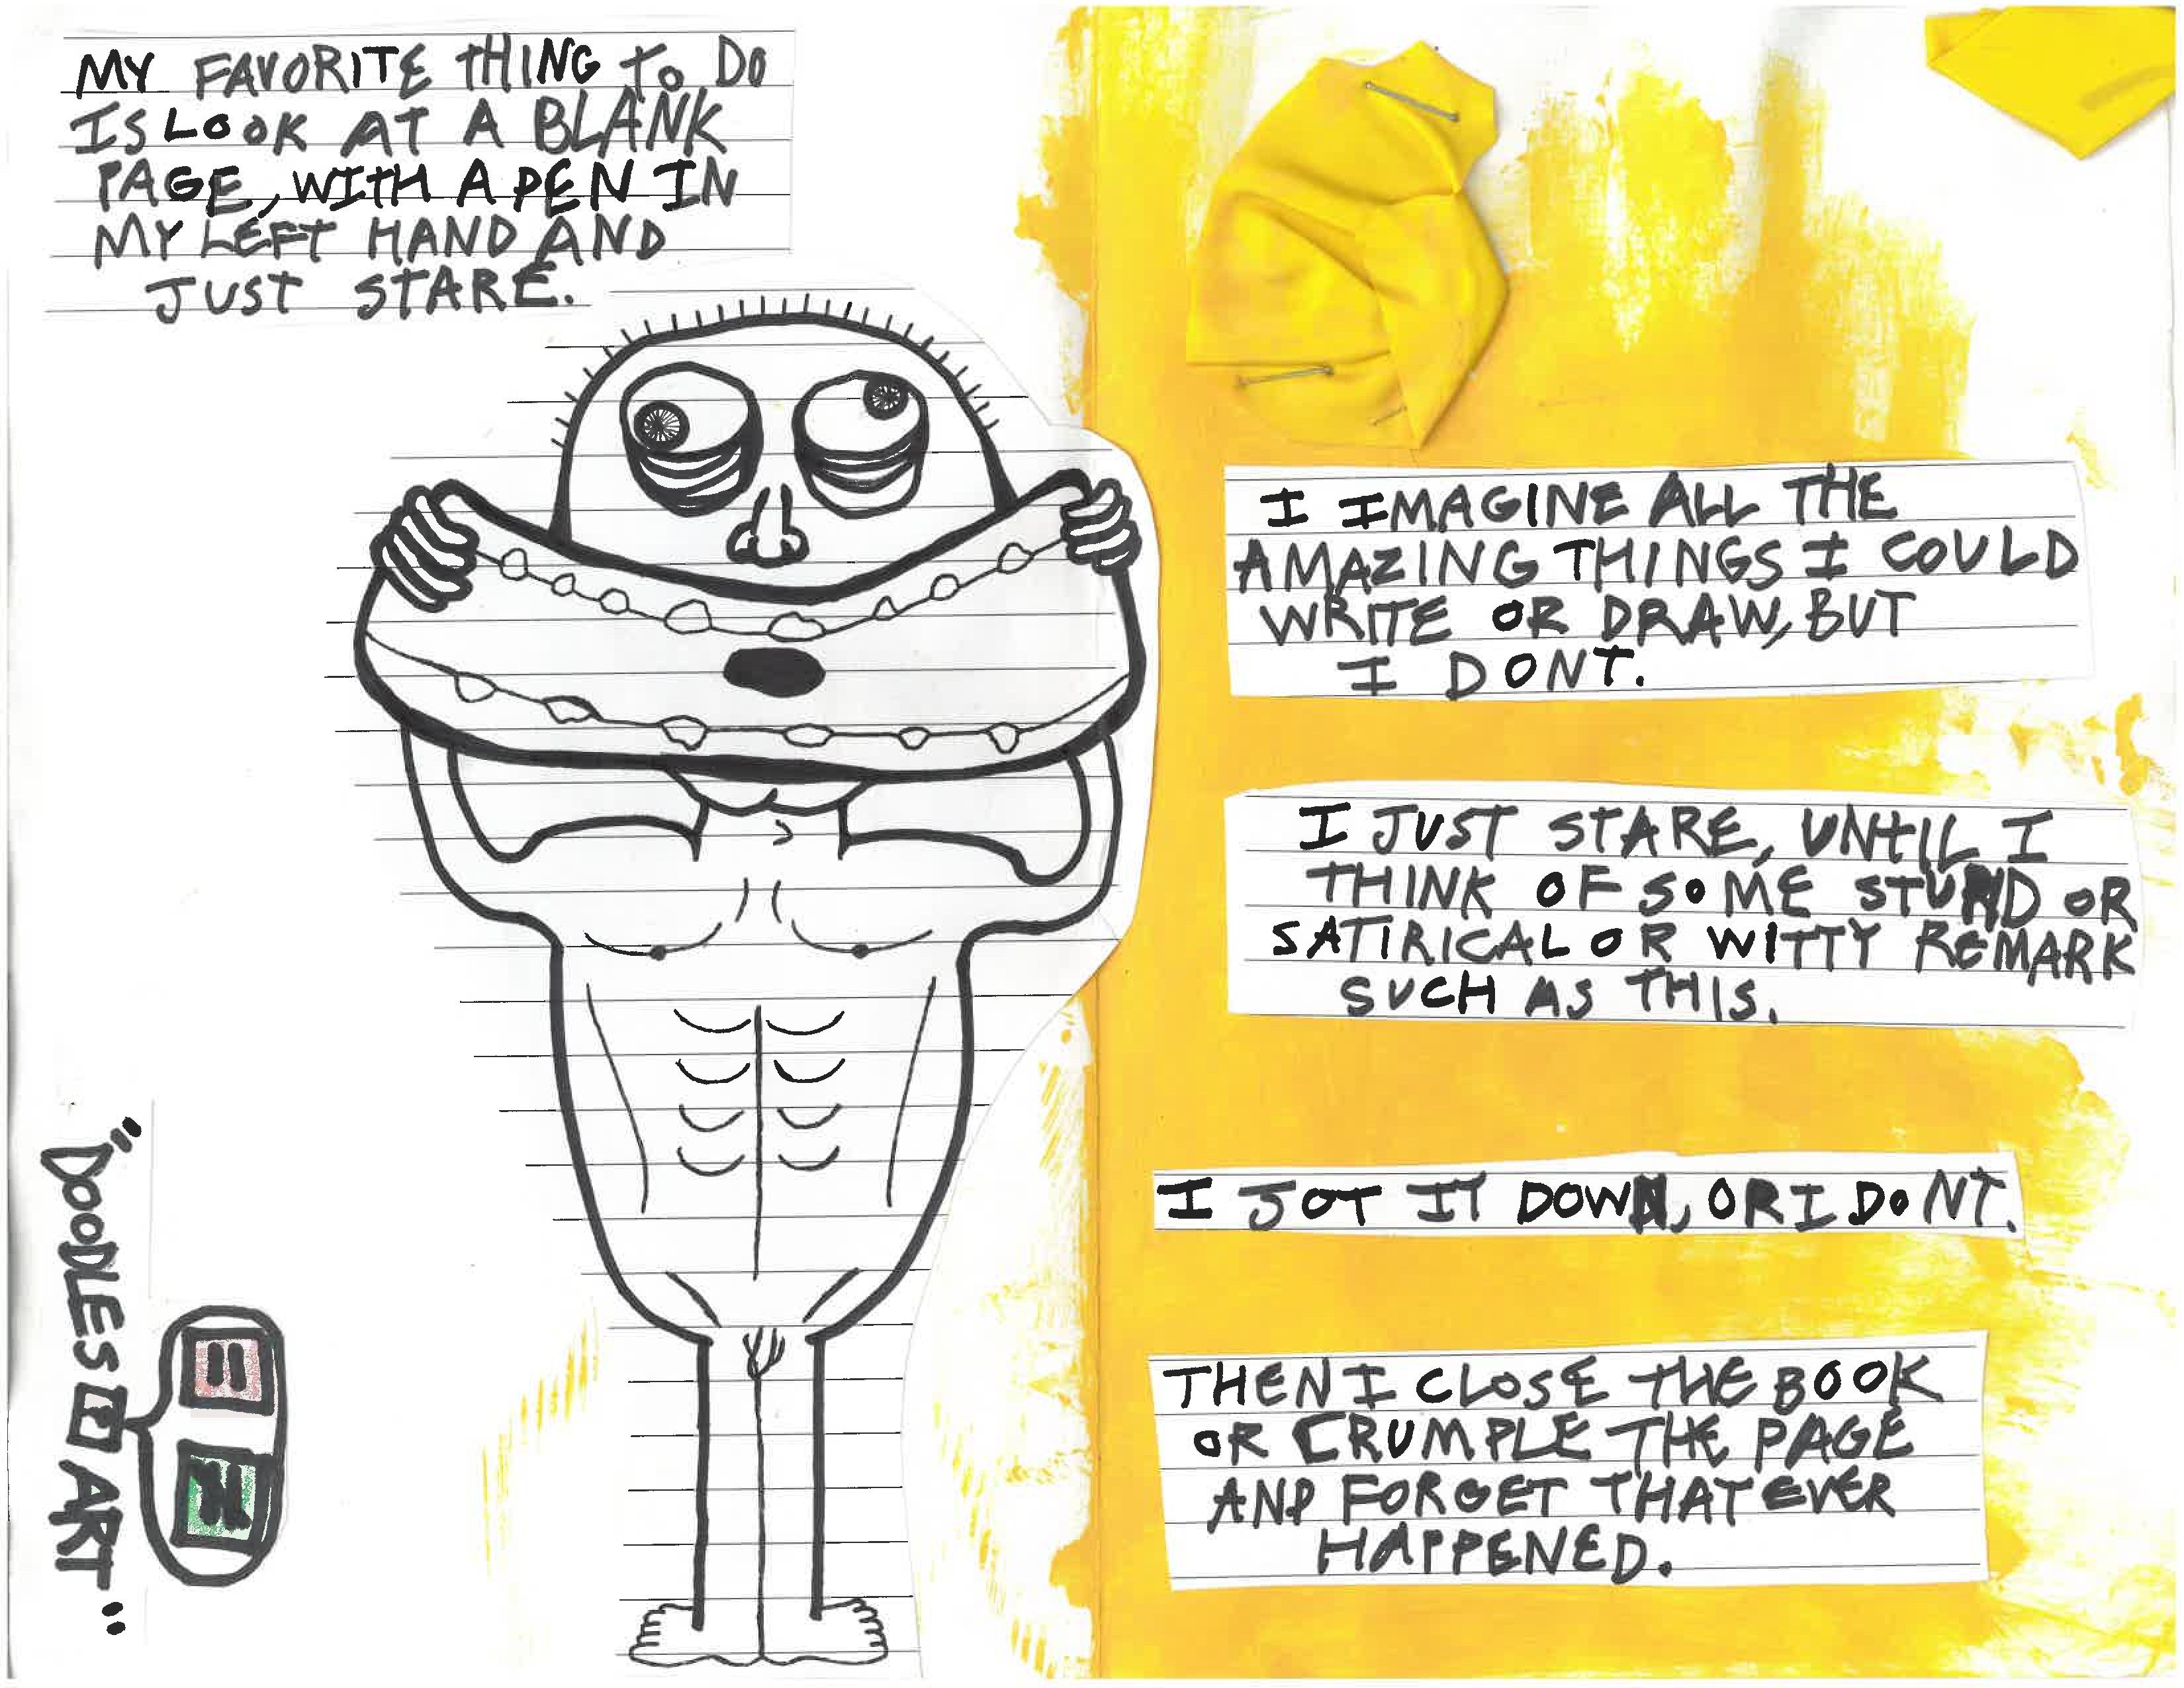 MY FAVORITE THING TO DO
IS LOOK AT A BLANK
PAGE, WITH A PEN IN
MY LEFT HAND AND
JUST STARE.
I IMAGINE ALL THE
AMAZING THINGS I COULD
WRITE OR DRAW, BUT
I DONT.
I JUST STARE, UNTIL I
THINK OF SOME STUPID OR
SATIRICAL OR WITTY REMARK
SUCH AS THIS.
I JOT IT DOWN, OR I DONT.
THEN I CLOSE THE BOOK
OR CRUMPLE THE PAGE
AND FORGET THAT EVER
HAPPENED.
"DOODLES ART"